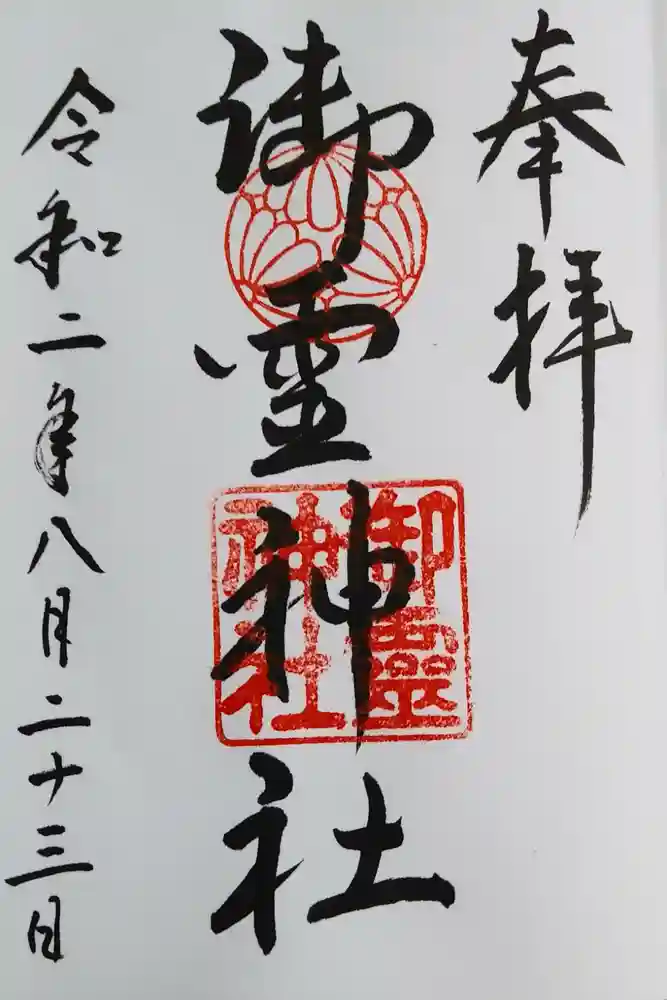 奉拝
御霊神社
御靈
神社
令和二年八月二十三日